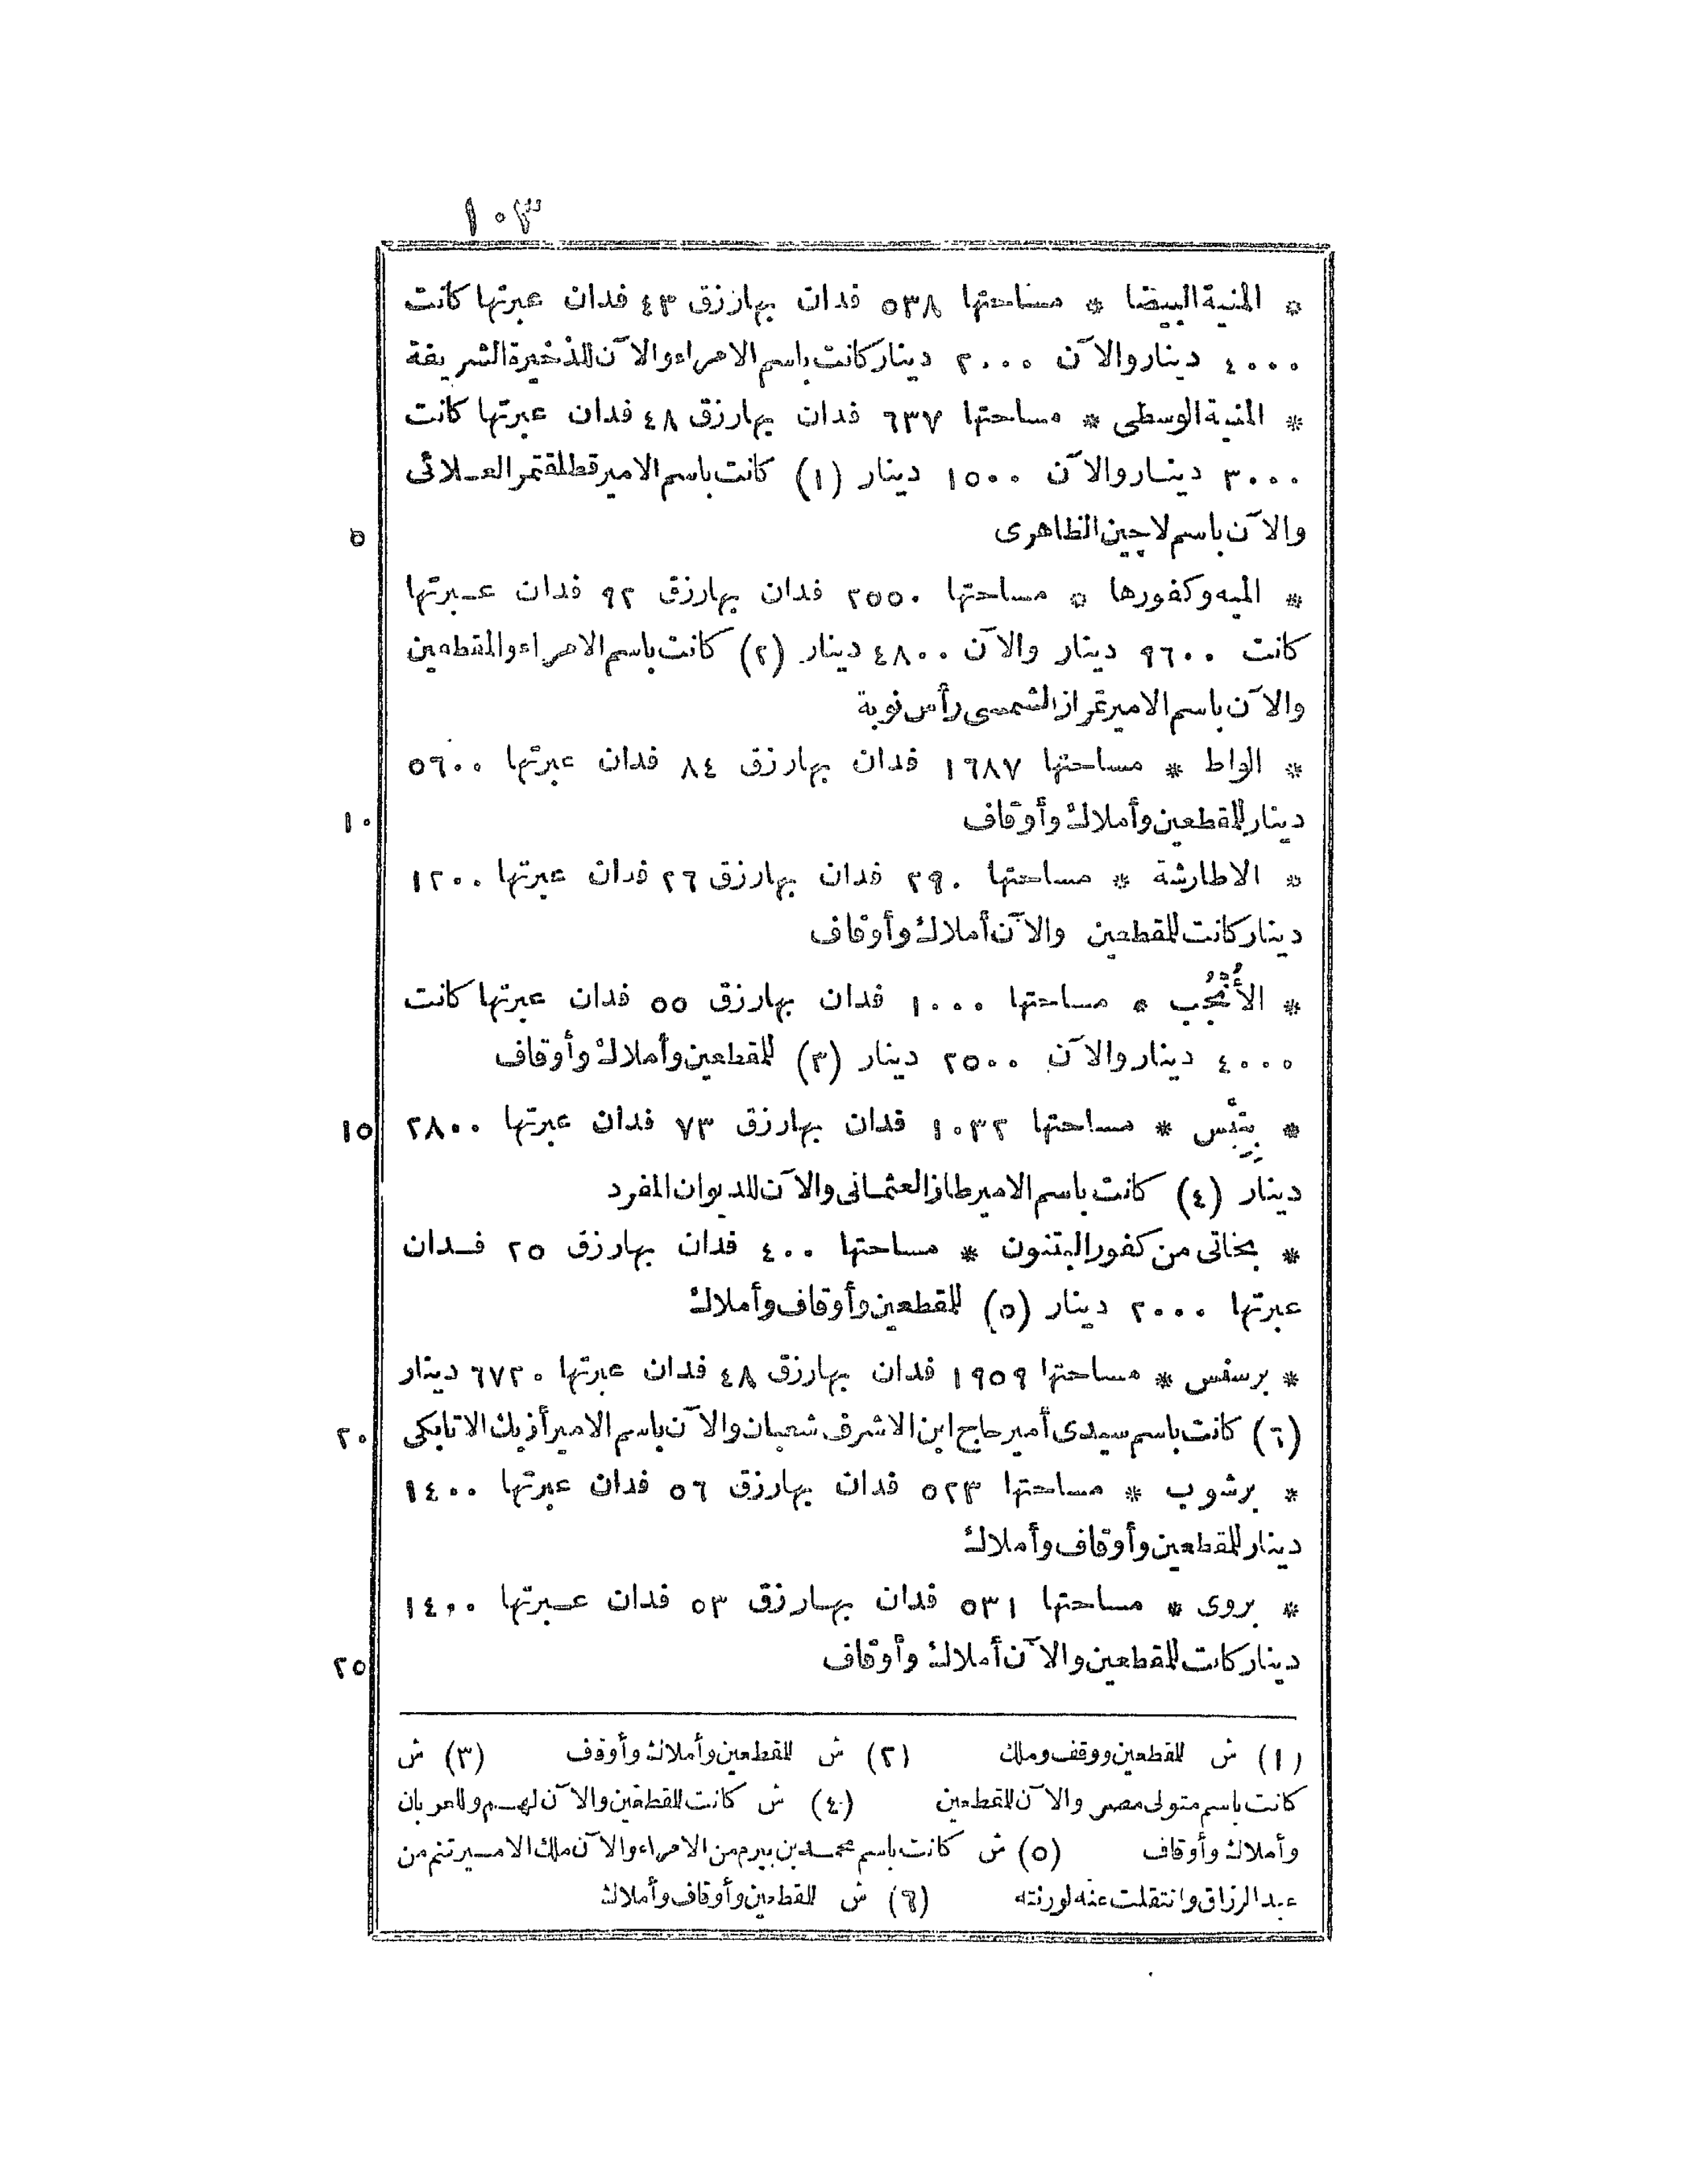 ١٠٣
* المنية البيضا * مساحتها ٥٣٨ فدان بها رزق ٤٣ فدان عبرتها كانت
٤٠٠٠ دينار والآن ٢٠٠٠ دينار كانت باسم الامراء والآن للذخيرة الشريفة
* المنية الوسطى * مساحتها ٦٣٧ فدان بها رزق ٤٨ فدان عبرتها كانت
٣٠٠٠ دينار والآن ١٥٠٠ دينار (١) كانت باسم الامير قطلقتمر العلائى
٥ والآن باسم لاجين الظاهرى
* الميه وكفورها * مساحتها ٢٥٥٠ فدان بها رزق ٩٢ فدان عبرتها
كانت ٩٦٠٠ دينار والآن ٤٨٠٠ دينار (٢) كانت باسم الامراء والمقطعين
والآن باسم الامير تمراز الشمسى رأس نوبة
* الواط * مساحتها ١٦٨٧ فدان بها رزق ٨٤ فدان عبرتها ٥٦٠٠
١٠ دينار للمقطعين وأملاك وأوقاف
* الاطارشة * مساحتها ٢٩٠ فدان بها رزق ٢٦ فدان عبرتها ١٢٠٠
دينار كانت للمقطعين والآن أملاك وأوقاف
* الأُنْجُب * مساحتها ١٠٠٠ فدان بها رزق ٥٥ فدان عبرتها كانت
٤٠٠٠ دينار والآن ٢٥٠٠ دينار (٣) للمقطعين وأملاك وأوقاف
١٥ * مساحتها ١٠٣٢ فدان بها رزق ٧٣ فدان عبرتها ٢٨٠٠
دينار (٤) كانت باسم الامير طاز العثمانى والآن للديوان المفرد
* بخاتى من كفور البتنون * مساحتها ٤٠٠ فدان بها رزق ٢٥ فدان
عبرتها ٢٠٠٠ دينار (٥) للمقطعين وأوقاف وأملاك
* برسفس * مساحتها ١٩٥٩ فدان بها رزق ٤٨ فدان عبرتها ٦٧٢٠ دينار
٢٠ (٦) كانت باسم سيدى أمير حاج ابن الاشرف شعبان والآن باسم الامير أزبك الاتابكى
* برشوب * مساحتها ٥٢٣ فدان بها رزق ٥٦ فدان عبرتها ١٤٠٠
دينار للمقطعين وأوقاف وأملاك
* بروى * مساحتها ٥٣١ فدان بها رزق ٥٣ فدان عبرتها ١٤٠٠
٢٥ دينار كانت للمقطعين والآن أملاك وأوقاف
(١) ش للمقطعين ووقف وملك (٢) ش للمقطعين وأملاك وأوقف (٣) ش
كانت باسم متولى مصر والآن للمقطعين (٤) ش كانت للمقطعين والآن لهم وللعربان
وأملاك وأوقاف (٥) ش كانت باسم محمد بن بيرم من الامراء والآن ملك الامير تنم من
عبد الرزاق وانتقلت عنه لورثته (٦) ش للمقطعين وأوقاف وأملاك